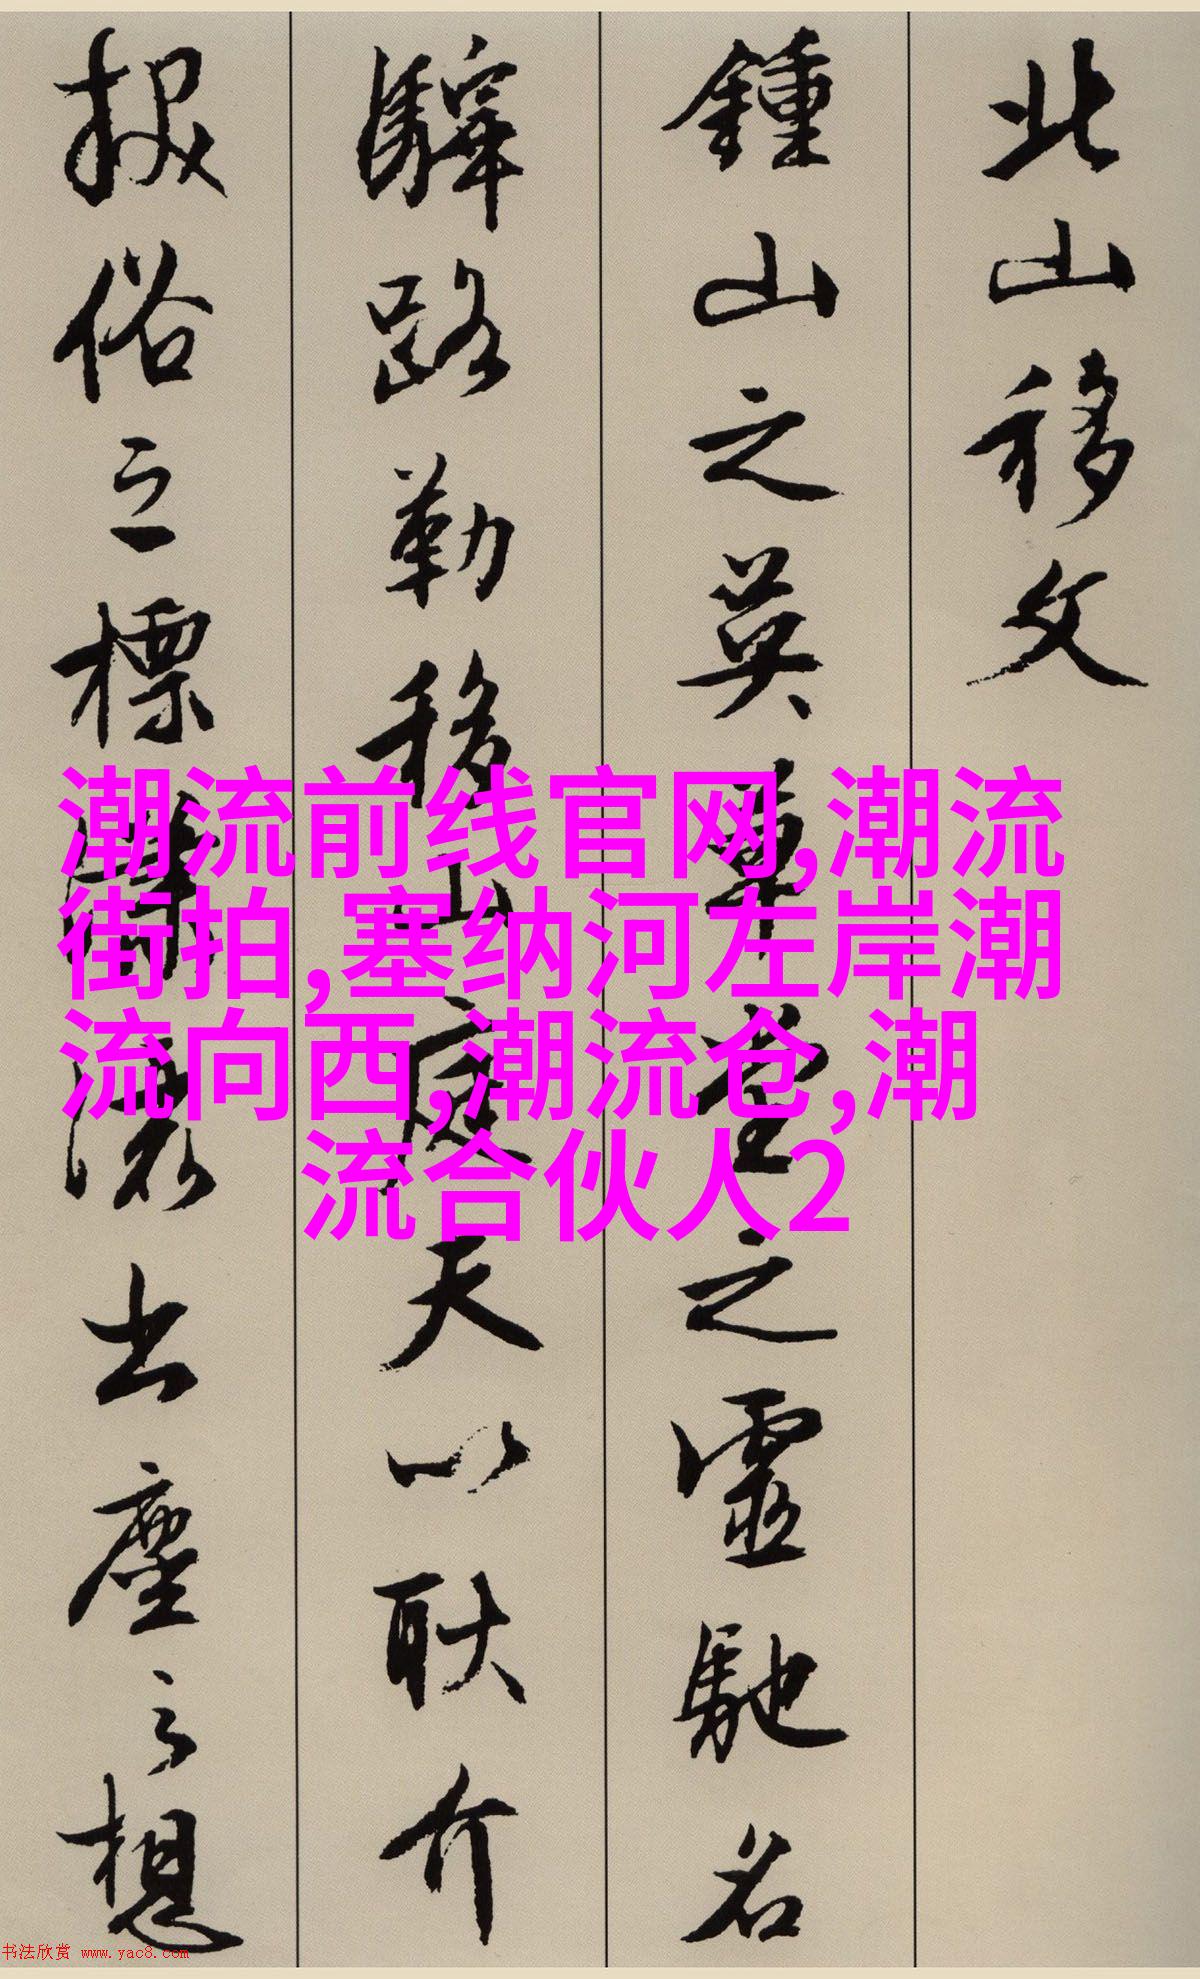 北山移文
鍾山之英草堂之靈馳名
驛路勒移山庭夫以耿介
拔俗之標瀟灑出塵之想
潮流前线官网,潮流
街拍,塞纳河左岸潮
流向西,潮流仓,潮
流合伙人2
书法欣赏 www.yac8.com